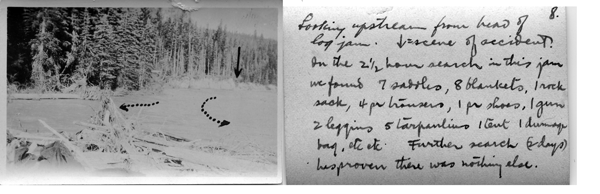 8.
Looking upstream from head of
log jam. ↓=scene of accident.
In the 2½ hour search in this jam
we found 7 saddles, 8 blankets, 1 ruck
sack, 4 pr trousers, 1 pr shoes, 1 gun
2 leggins 5 tarpaulins 1 tent 1 dunnage
bag, etc etc. Further search (2 days)
has proven there was nothing else.